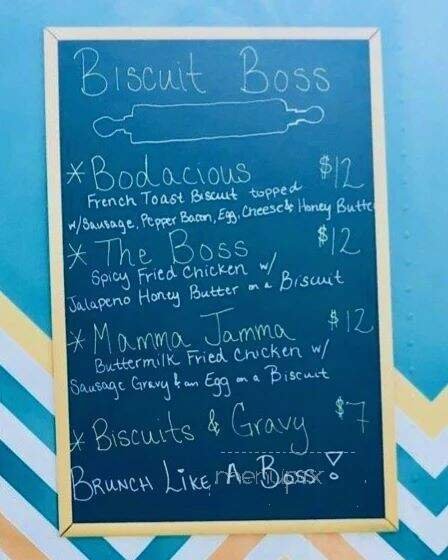 Biscuit Boss
* Bodacious $12
French Toast Biscuit topped
w/Sausage, Pepper Bacon, Egg, Cheese & Honey Butte
* The Boss $12
Spicy Fried Chicken w/
Jalapeno Honey Butter on a Biscuit
* Mamma Jamma $12
Buttermilk Fried Chicken w/
Sausage Gravy & an Egg on a Biscuit
* Biscuits & Gravy $7
Brunch Like A Boss!
menupix